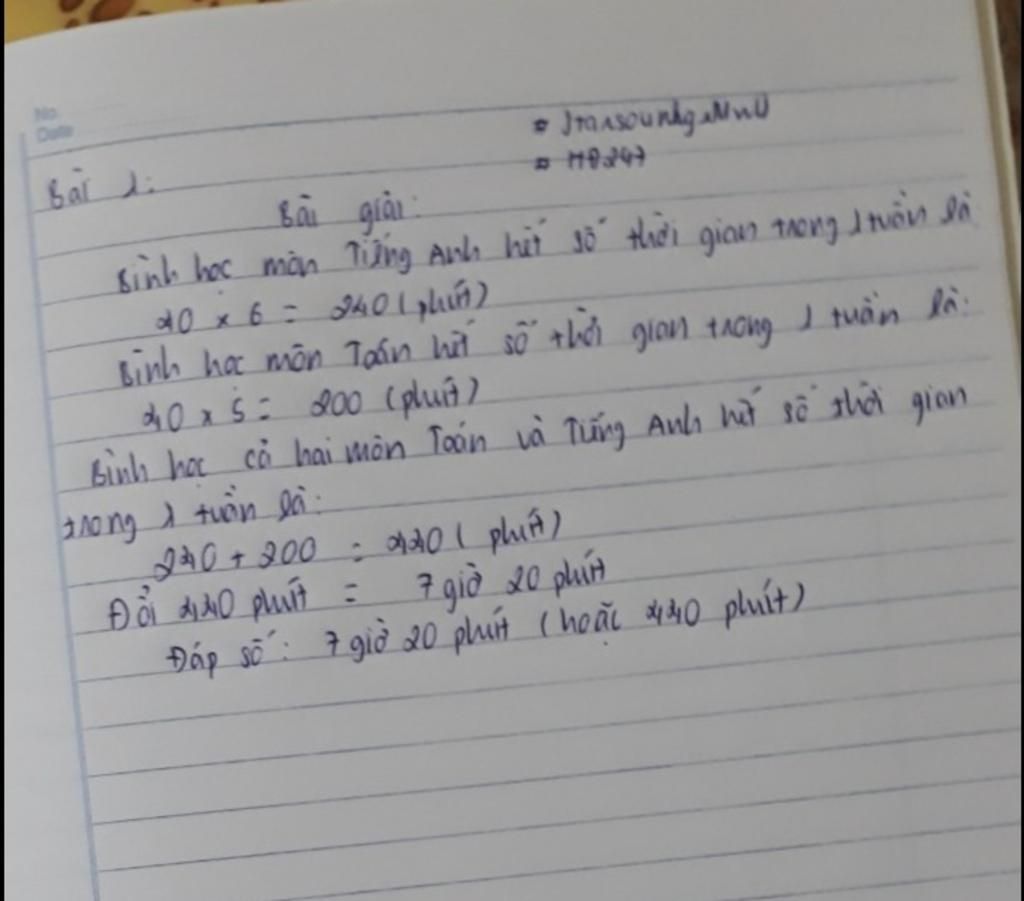 No.
Date
Bài 1:
Bài giải:
Bình học môn Tiếng Anh hết số thời gian trong 1 tuần là
40 x 6 = 240 (phút)
Bình học môn Toán hết số thời gian trong 1 tuần là:
40 x 5 = 200 (phút)
Bình học cả hai môn Toán và Tiếng Anh hết số thời gian
trong 1 tuần là:
240 + 200 = 440 ( phút)
Đổi 440 phút = 7 giờ 20 phút
Đáp số: 7 giờ 20 phút (hoặc 440 phút)